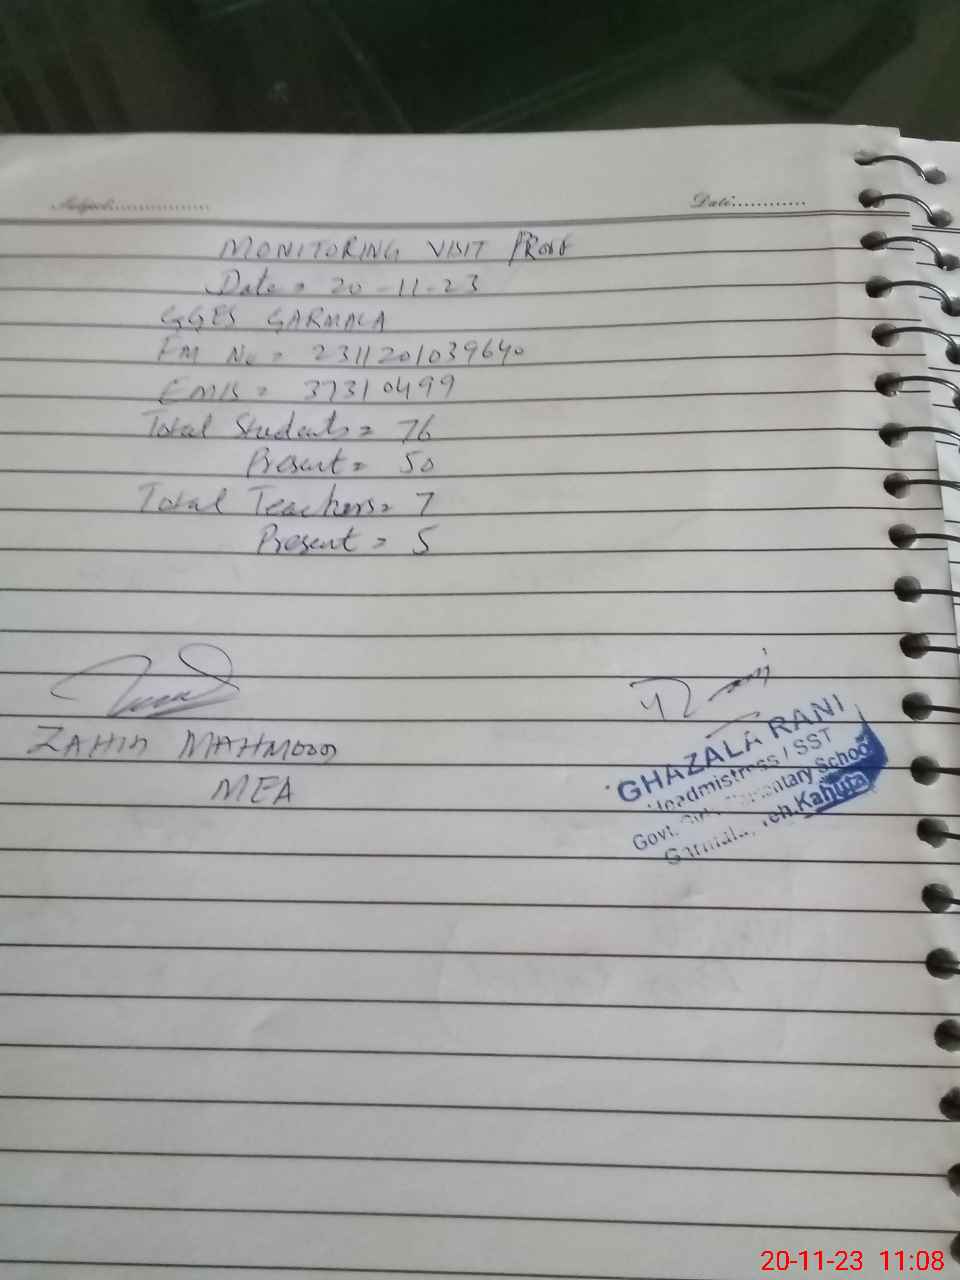 Subject................
Date............
MONITORING VISIT PROOF
Date = 20-11-23
GGES GARMALA
FM No = 2311201039640
EMIS = 37310499
Total Students = 76
Present = 50
Total Teachers = 7
Present = 5
ZAHID MAHMOOD
MEA
Rani
GHAZALA RANI
Headmistress / SST
Govt. Girls Elementary School
Garmala, Teh. Kahuta
20-11-23 11:08